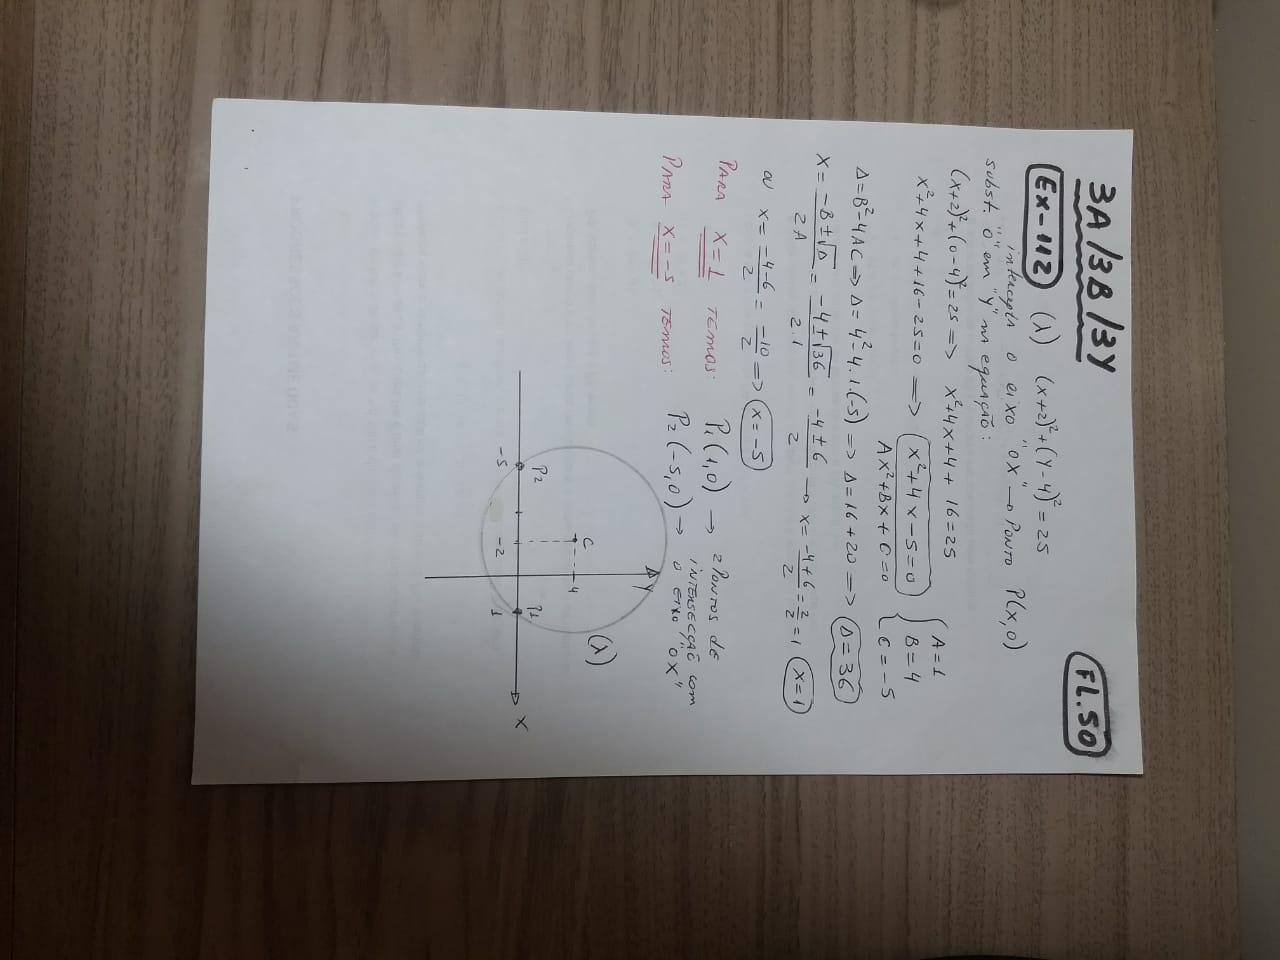 3A/3B/3Y
FL.50
Ex-112 (λ) (x+2)²+(y-4)²=25
intercepta o eixo "ox" → Ponto P(x,0)
subst. "0" em "y" na equação:
(x+2)²+(0-4)²=25 => x²+4x+4+16=25
x²+4x+4+16-25=0 => x²+4x-5=0 { A=1 B=4 C=-5
Ax²+Bx+C=0
Δ=B²-4AC => Δ=4²-4.1.(-5) => Δ=16+20 => Δ=36
x = (-B±√Δ)/2A = (-4±√36)/2.1 = (-4±6)/2 → x = (-4+6)/2 = 2/2 = 1 x=1
ou x = (-4-6)/2 = -10/2 => x=-5
PARA x=1 TEMOS: P1 (1,0) → 2 PONTOS DE
INTERSECÇÃO COM
PARA x=-5 TEMOS: P2 (-5,0) → O EIXO "OX"
y
(λ)
C
4
P2
P1
-5
-2
1
x